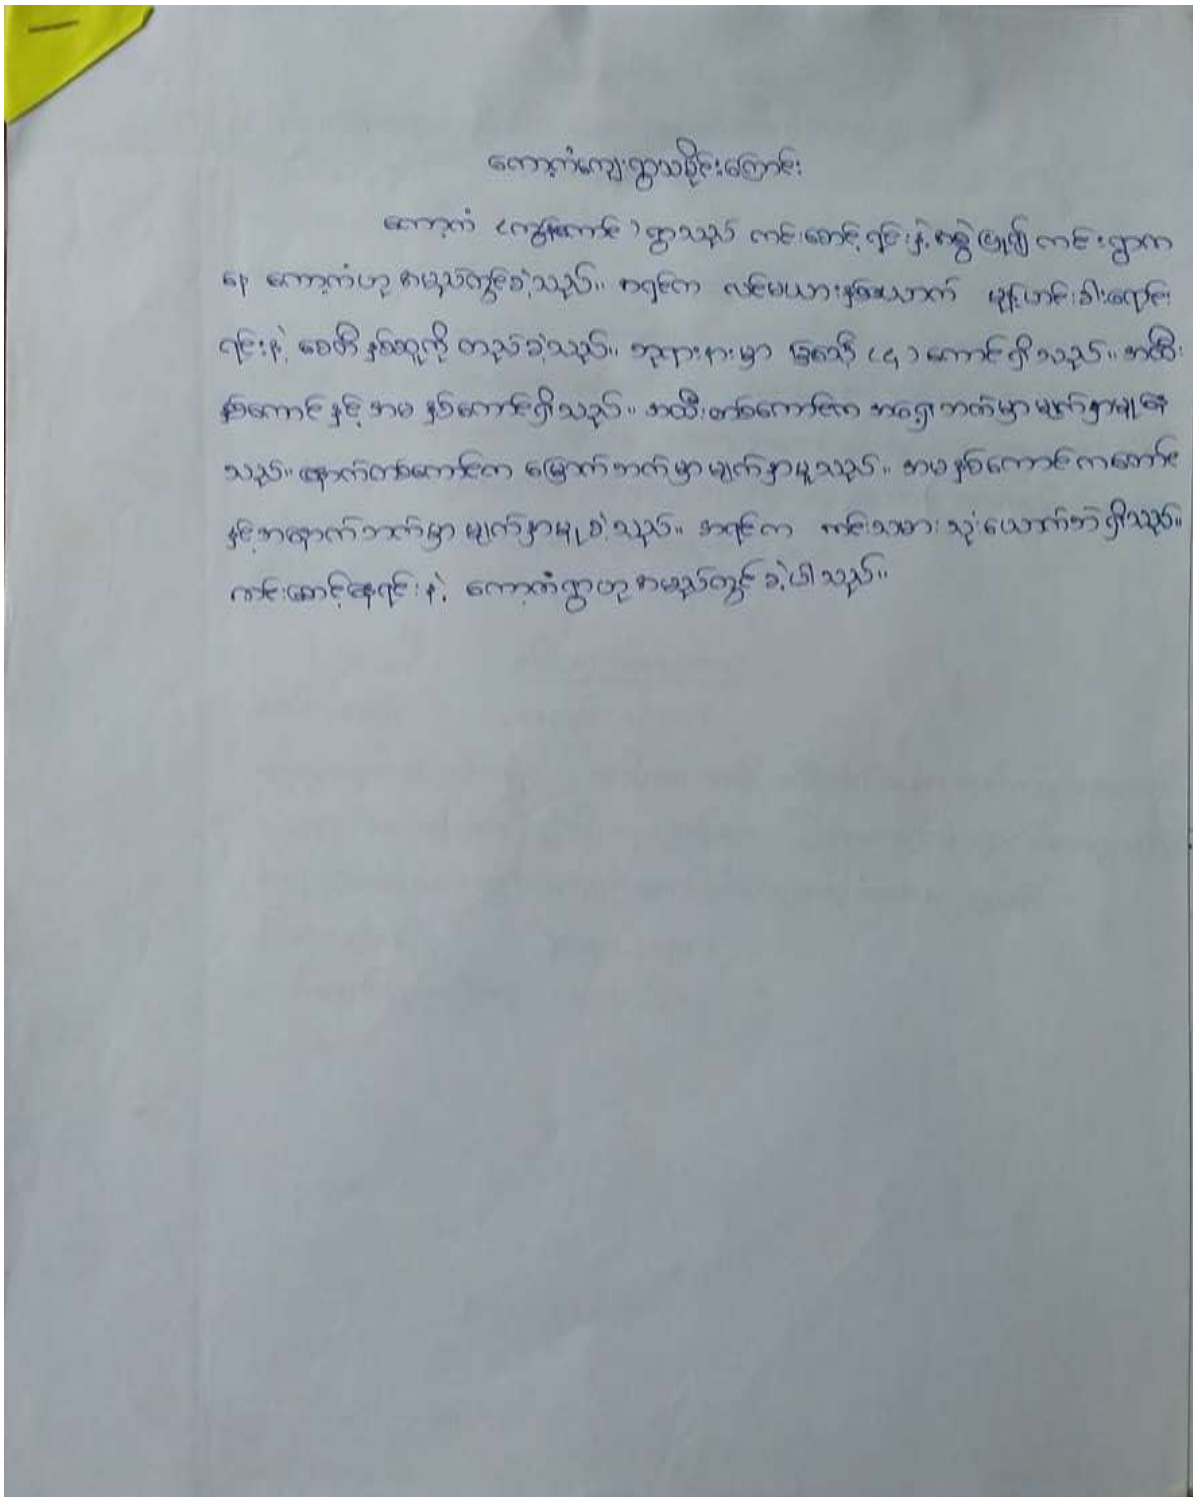 ကော့ကံကျေးရွာသမိုင်းကြောင်း
ကော့ကံ (ကျွန်းကောင်) ရွာသည် ကင်းစောင့်ရင်းနဲ့ အစွဲပြု၍ ကင်းရွာက
နေ ကော့ကံဟု အမည်တွင်ခဲ့သည်။ အရင်က လင်မယားနှစ်ယောက် မုန့်ဟင်းခါးရောင်း
ရင်းနဲ့ စေတီနှစ်ဆူကို တည်ခဲ့သည်။ ဘုရားနားမှာ ခြင်္သေ့ (၄) ကောင်ရှိသည်။ အထီး
နှစ်ကောင်နှင့် အမ နှစ်ကောင်ရှိသည်။ အထီးတစ်ကောင်က အရှေ့ဘက်မှာမျက်နှာမူနေ
သည်။ နောက်တစ်ကောင်က မြောက်ဘက်မှာမျက်နှာမူသည်။ အမနှစ်ကောင်ကတောင်
နှင့်အနောက်ဘက်မှာ မျက်နှာမူခဲ့သည်။ အရင်က ကင်းသမား သုံးယောက်ဘဲရှိသည်။
ကင်းစောင့်နေရင်းနဲ့ ကော့ကံရွာဟု အမည်တွင်ခဲ့ပါသည်။